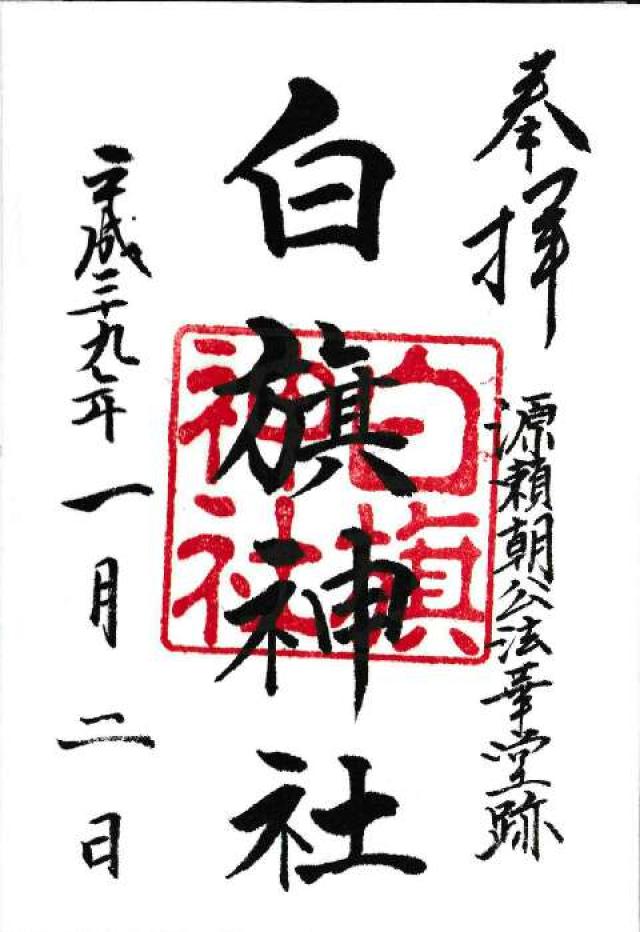 奉拝
源頼朝公法華堂跡
白旗神社
白旗
神社
平成二十九年一月二日